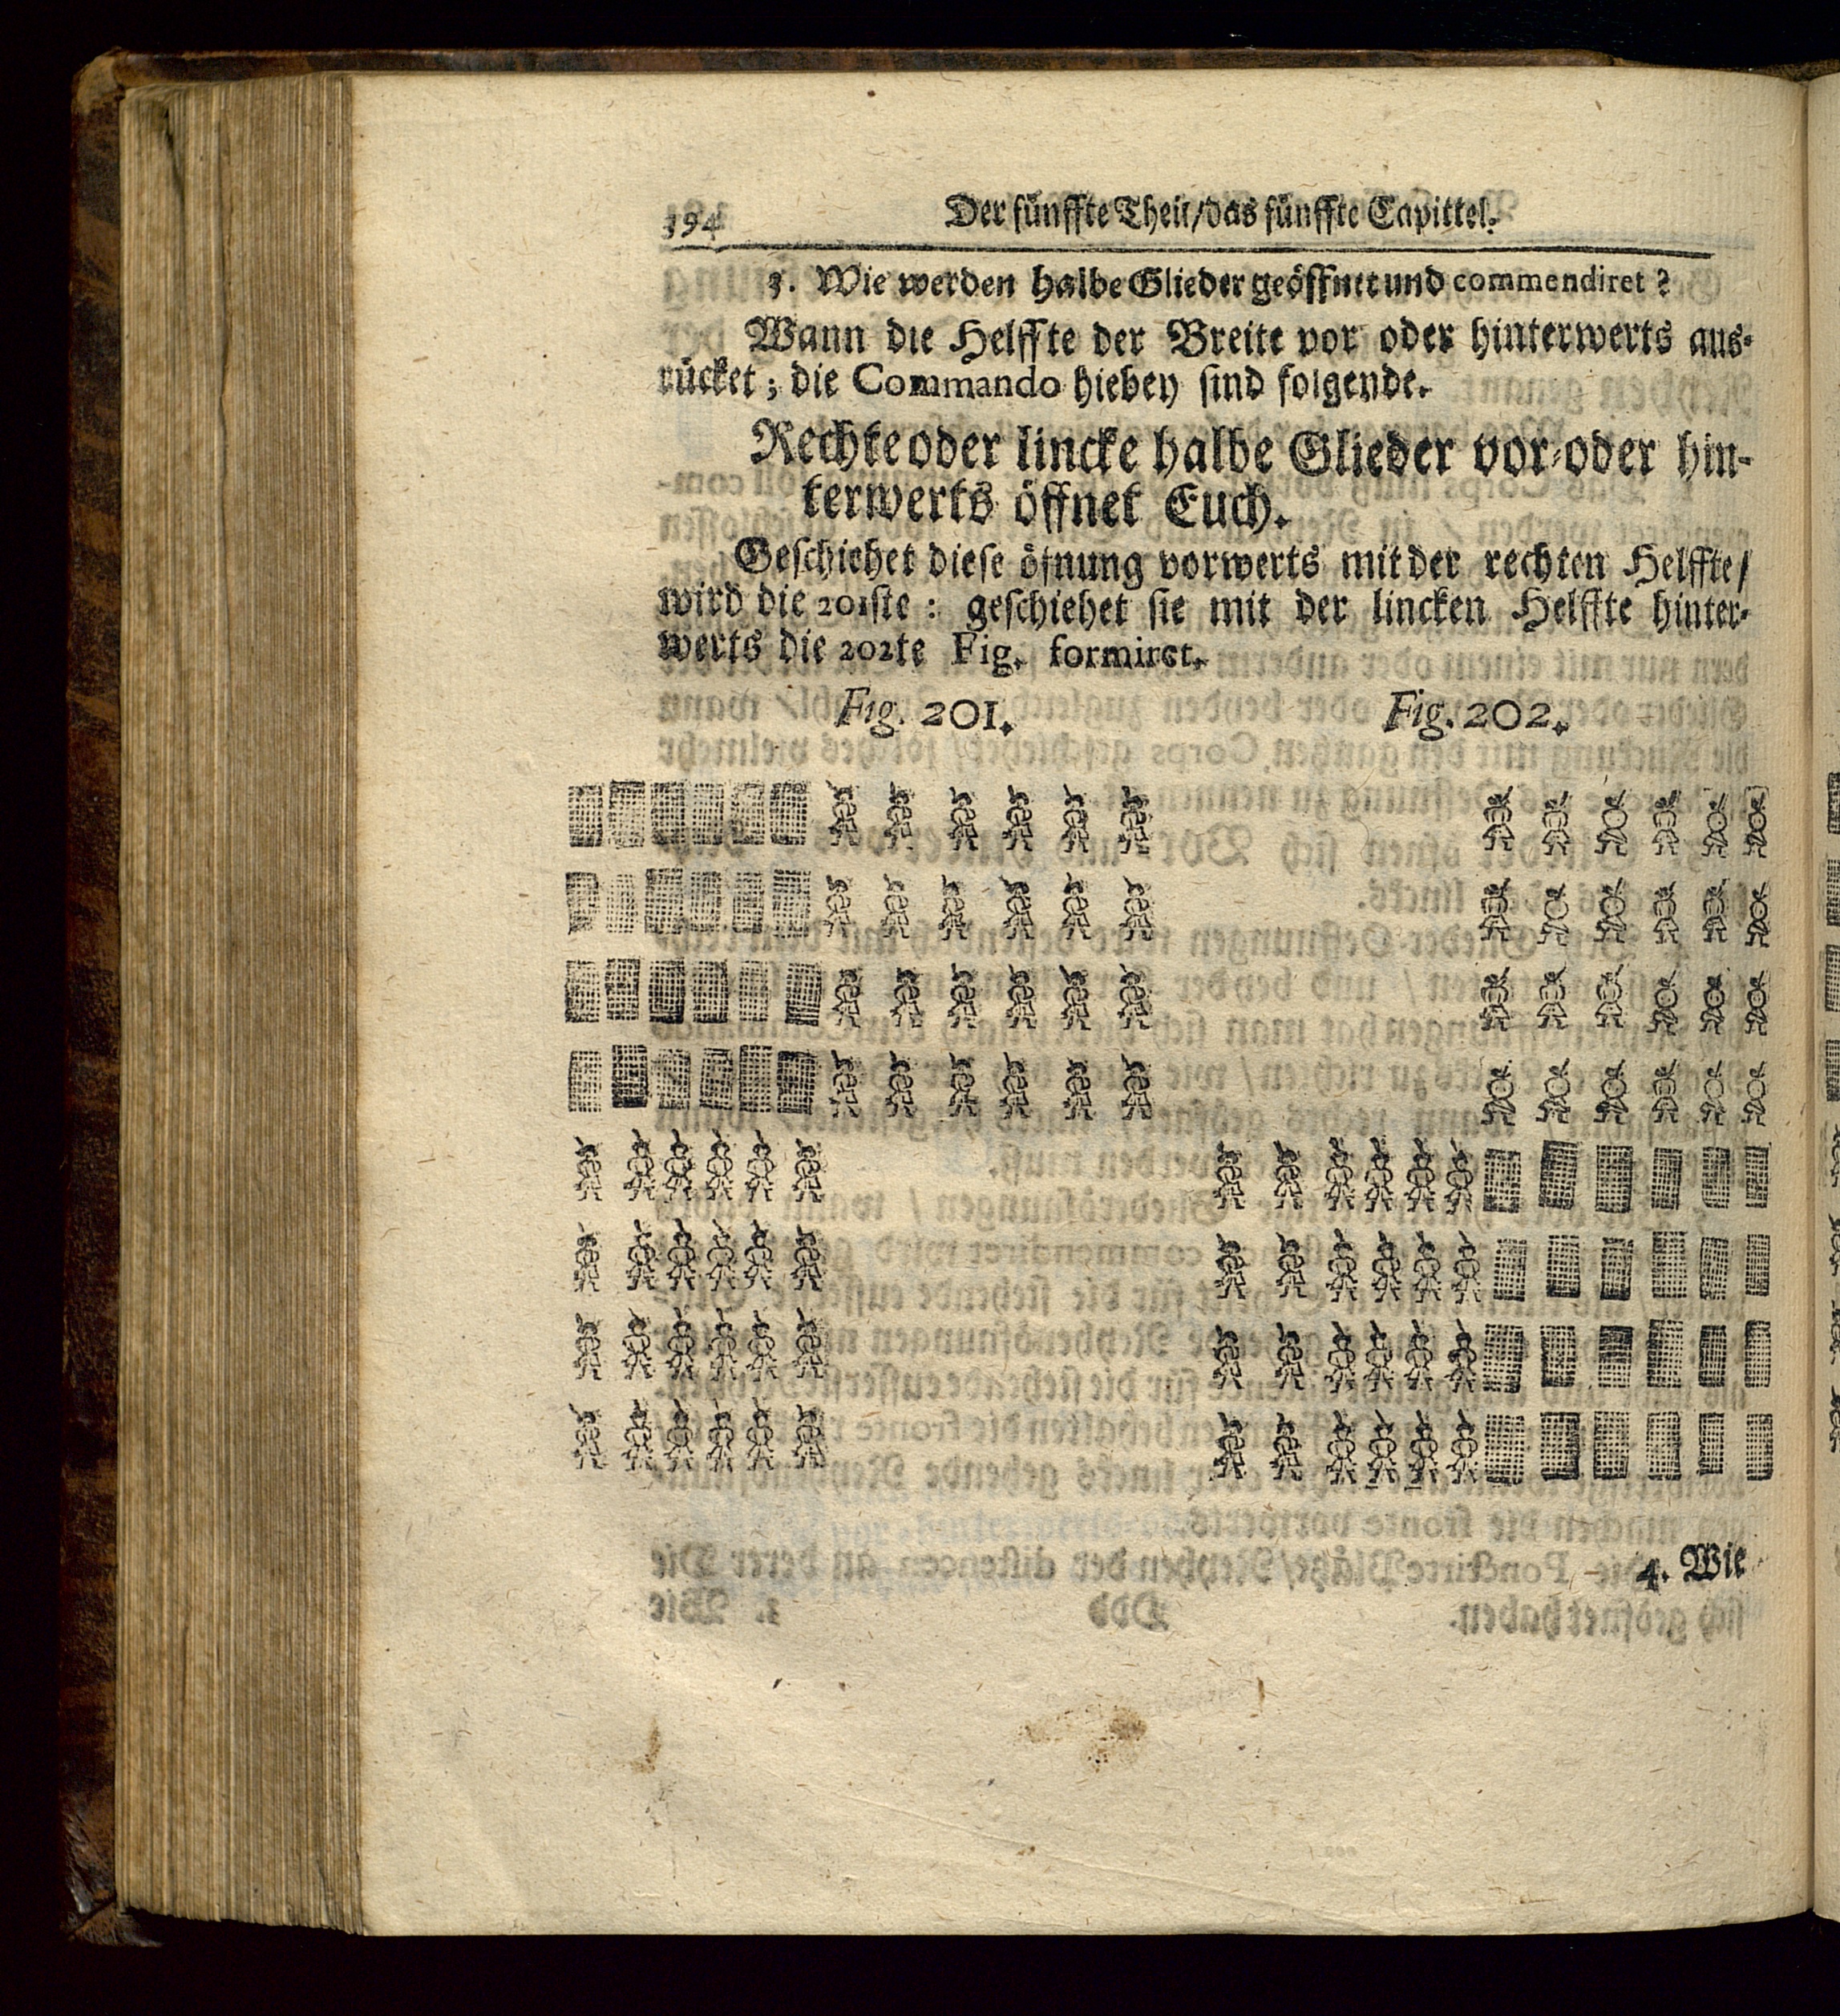 394 Der fünffte Theil/das fünffte Capittel.
3. Wie werden halbe Glieder geöffnet und commendiret?
Wann die Helffte der Breite vor oder hinterwerts aus-
rücket; die Commando hiebey sind folgende.
Rechte oder lincke halbe Glieder vor-oder hin-
terwerts öffnet Euch.
Geschiehet diese öfnung vorwerts mit der rechten Helffte/
wird die 201ste: geschiehet sie mit der lincken Helffte hinter-
werts die 202te Fig. formiret.
Fig. 201. Fig. 202.
4. Wie